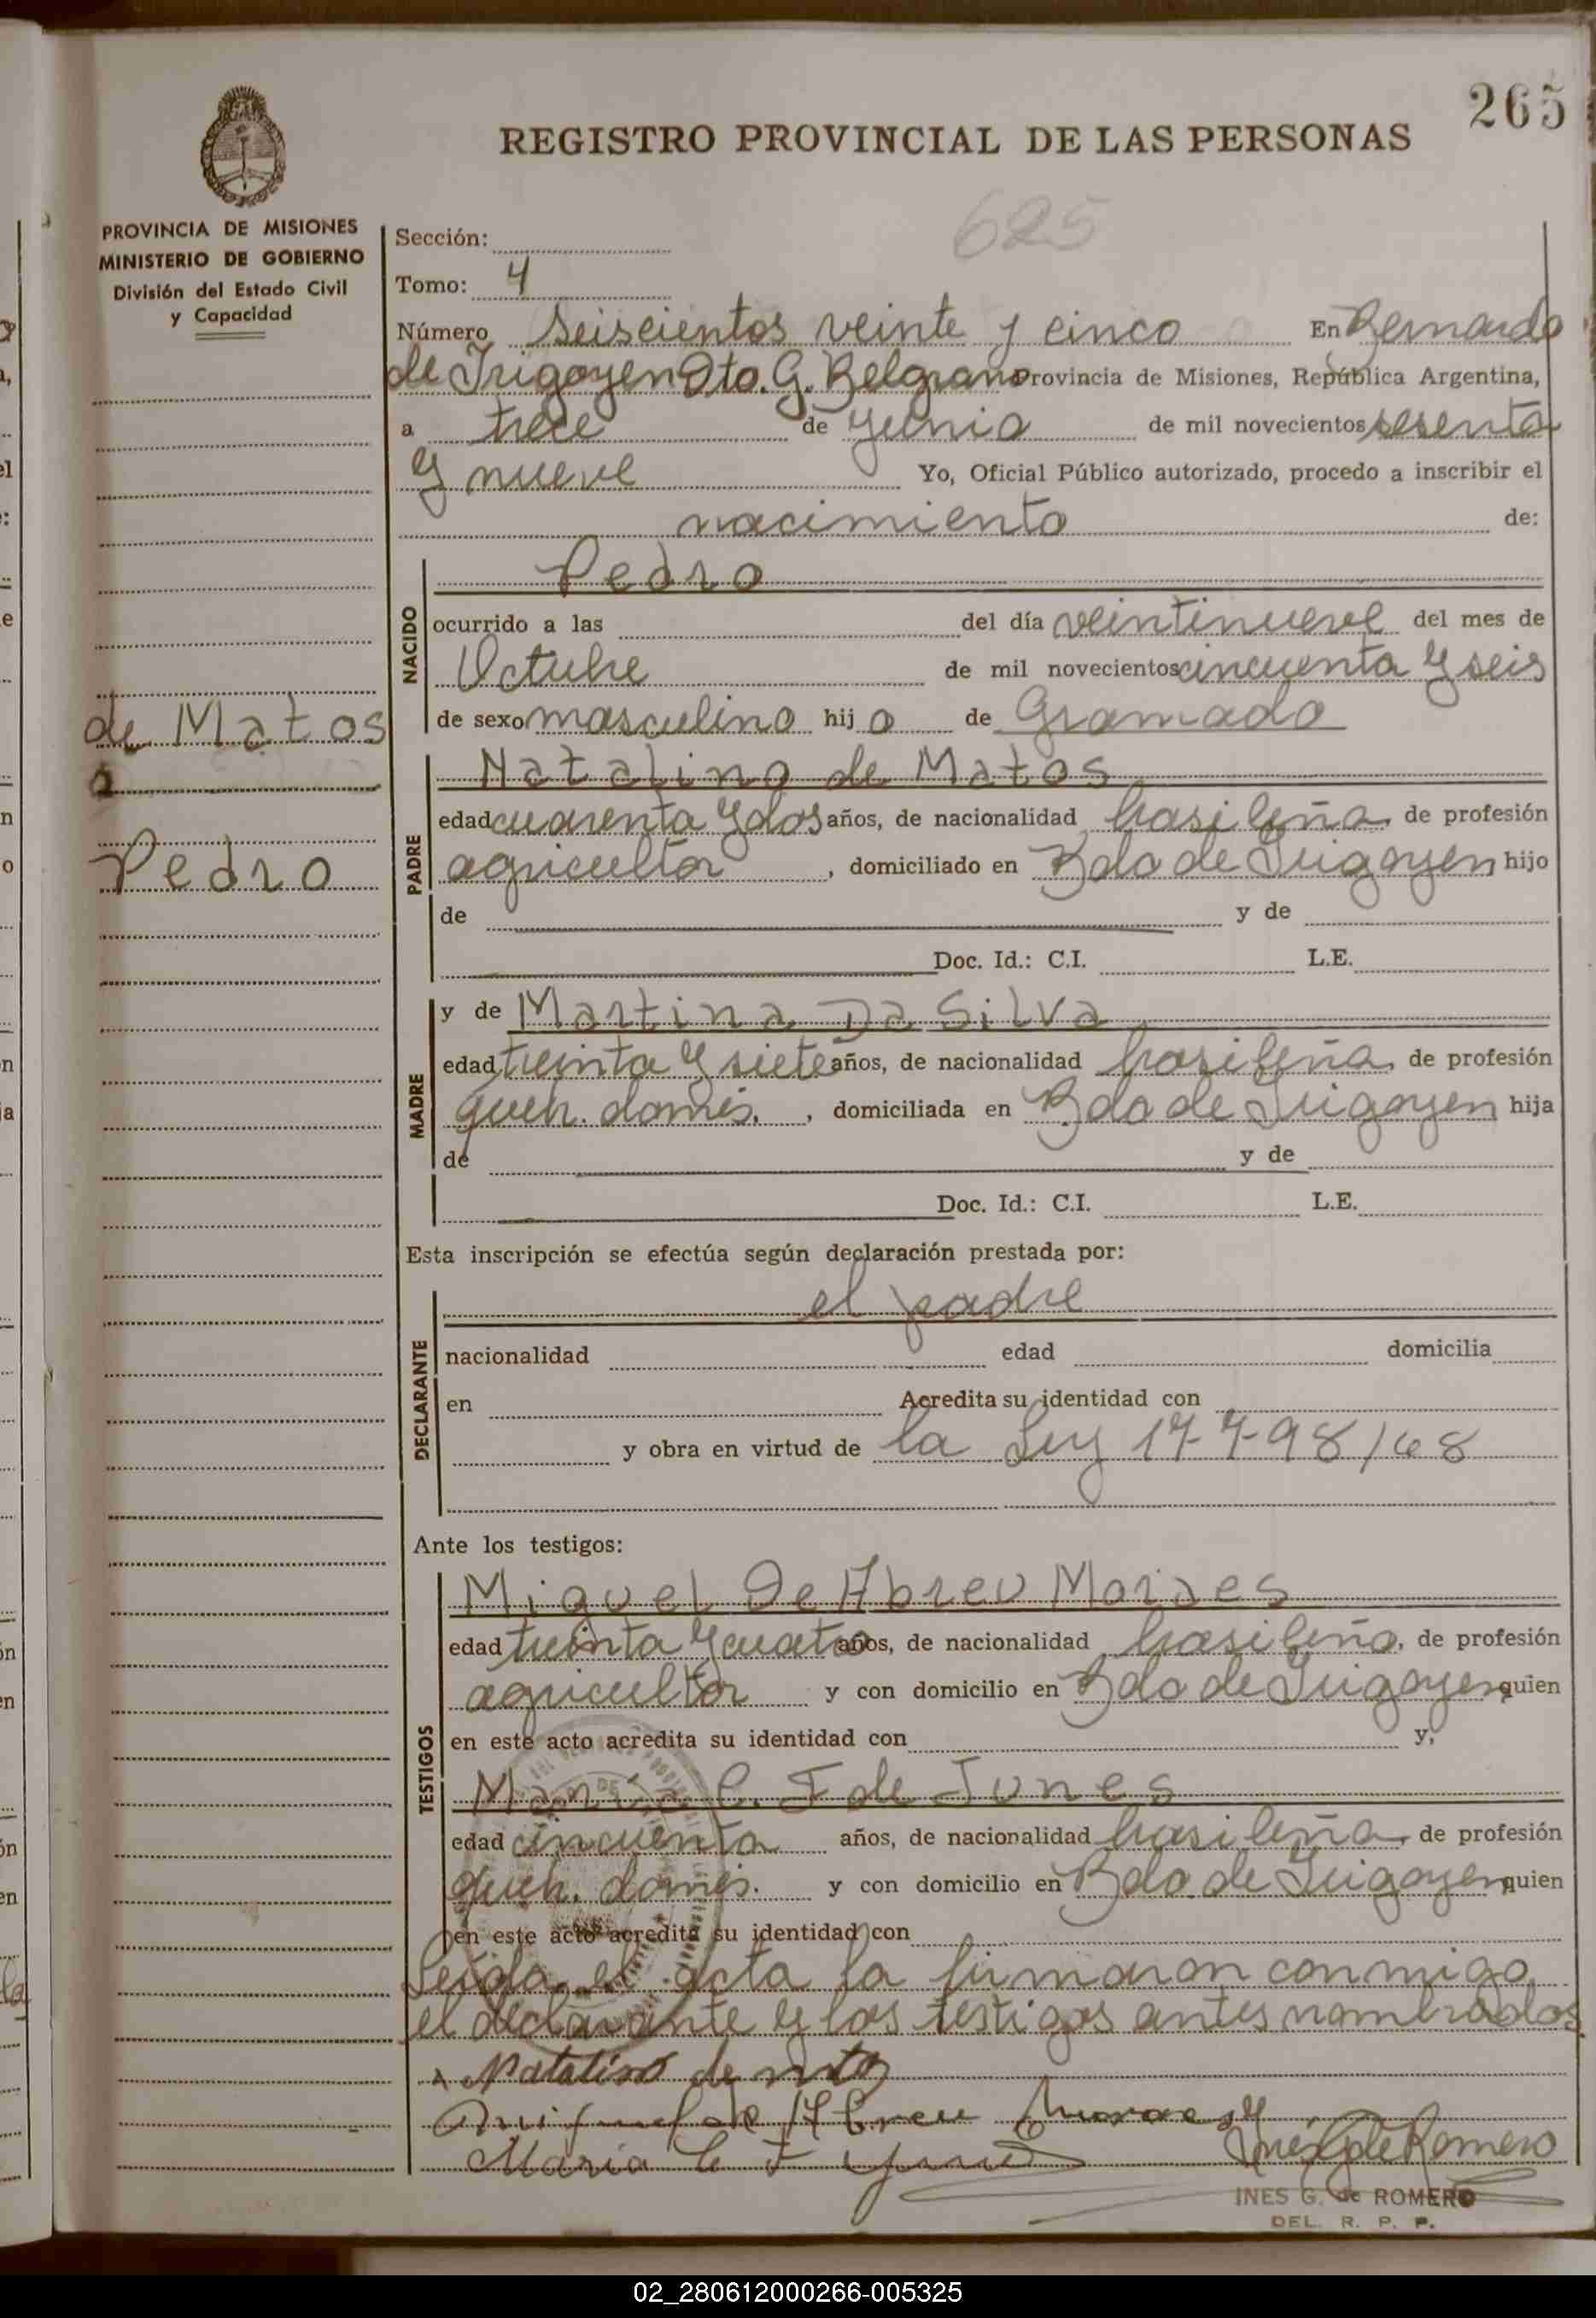 265
REGISTRO PROVINCIAL DE LAS PERSONAS
625
PROVINCIA DE MISIONES
MINISTERIO DE GOBIERNO
División del Estado Civil
y Capacidad
Sección:
Tomo: 4
Número Seiscientos veinte y cinco En Bernardo
de Irigoyen Dto. G. Belgrano Provincia de Misiones, República Argentina,
a trece de Junio de mil novecientos sesenta
y nueve Yo, Oficial Público autorizado, procedo a inscribir el
nacimiento de:
NACIDO
Pedro
ocurrido a las del día veintinueve del mes de
Octubre de mil novecientos cincuenta y seis
de sexo masculino hij o de Gramado
de Matos
Pedro
PADRE
Natalino de Matos
edad cuarenta y dos años, de nacionalidad brasileña, de profesión
agricultor, domiciliado en Bdo de Irigoyen hijo
de y de
Doc. Id.: C.I. L.E.
MADRE
y de Martina Da Silva
edad treinta y siete años, de nacionalidad brasileña, de profesión
queh. domés., domiciliada en Bdo de Irigoyen hija
de y de
Doc. Id.: C.I. L.E.
Esta inscripción se efectúa según declaración prestada por:
DECLARANTE
el padre
nacionalidad edad domicilia
en Acredita su identidad con
y obra en virtud de la Ley 17798/68
Ante los testigos:
TESTIGOS
Miguel De Abreu Moraes
edad treinta y cuatro años, de nacionalidad brasileño, de profesión
agricultor y con domicilio en Bdo de Irigoyen quien
en este acto acredita su identidad con y,
María C. F de Junes
edad cincuenta años, de nacionalidad brasileña, de profesión
queh. domés. y con domicilio en Bdo. de Irigoyen quien
en este acto acredita su identidad con
Leída el acta la firmaron conmigo
el declarante y los testigos antes nombrados
Natalino de
de Abreu Moraes
Maria C F
Inés G de Romero
INES G. de ROMERO
DEL. R. P. P.
02_280612000266-005325